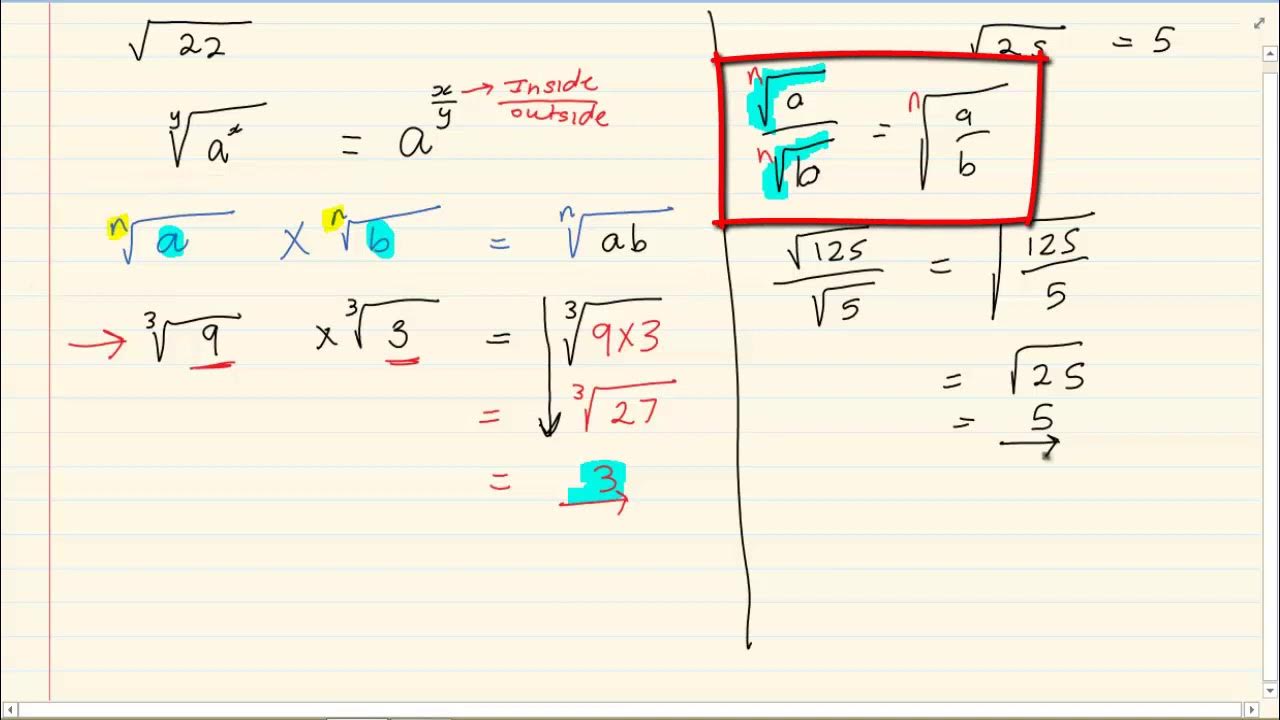 √22
ʸ√aˣ = a^(x/y) → Inside/outside
ⁿ√a × ⁿ√b = ⁿ√ab
→ ³√9 × ³√3 = ³√9×3
= ³√27
= 3
√25 = 5
ⁿ√a/ⁿ√b = ⁿ√(a/b)
√125/√5 = √(125/5)
= √25
= 5